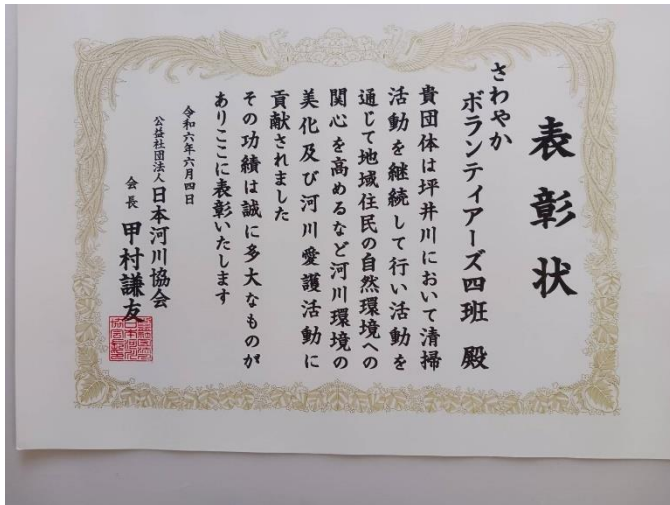 表彰状
さわやか
ボランティアーズ四班 殿
貴団体は坪井川において清掃
活動を継続して行い活動を
通じて地域住民の自然環境への
関心を高めるなど河川環境の
美化及び河川愛護活動に
貢献されました
その功績は誠に多大なものが
ありここに表彰いたします
令和六年六月四日
公益社団法人 日本河川協会
会長 甲村謙友